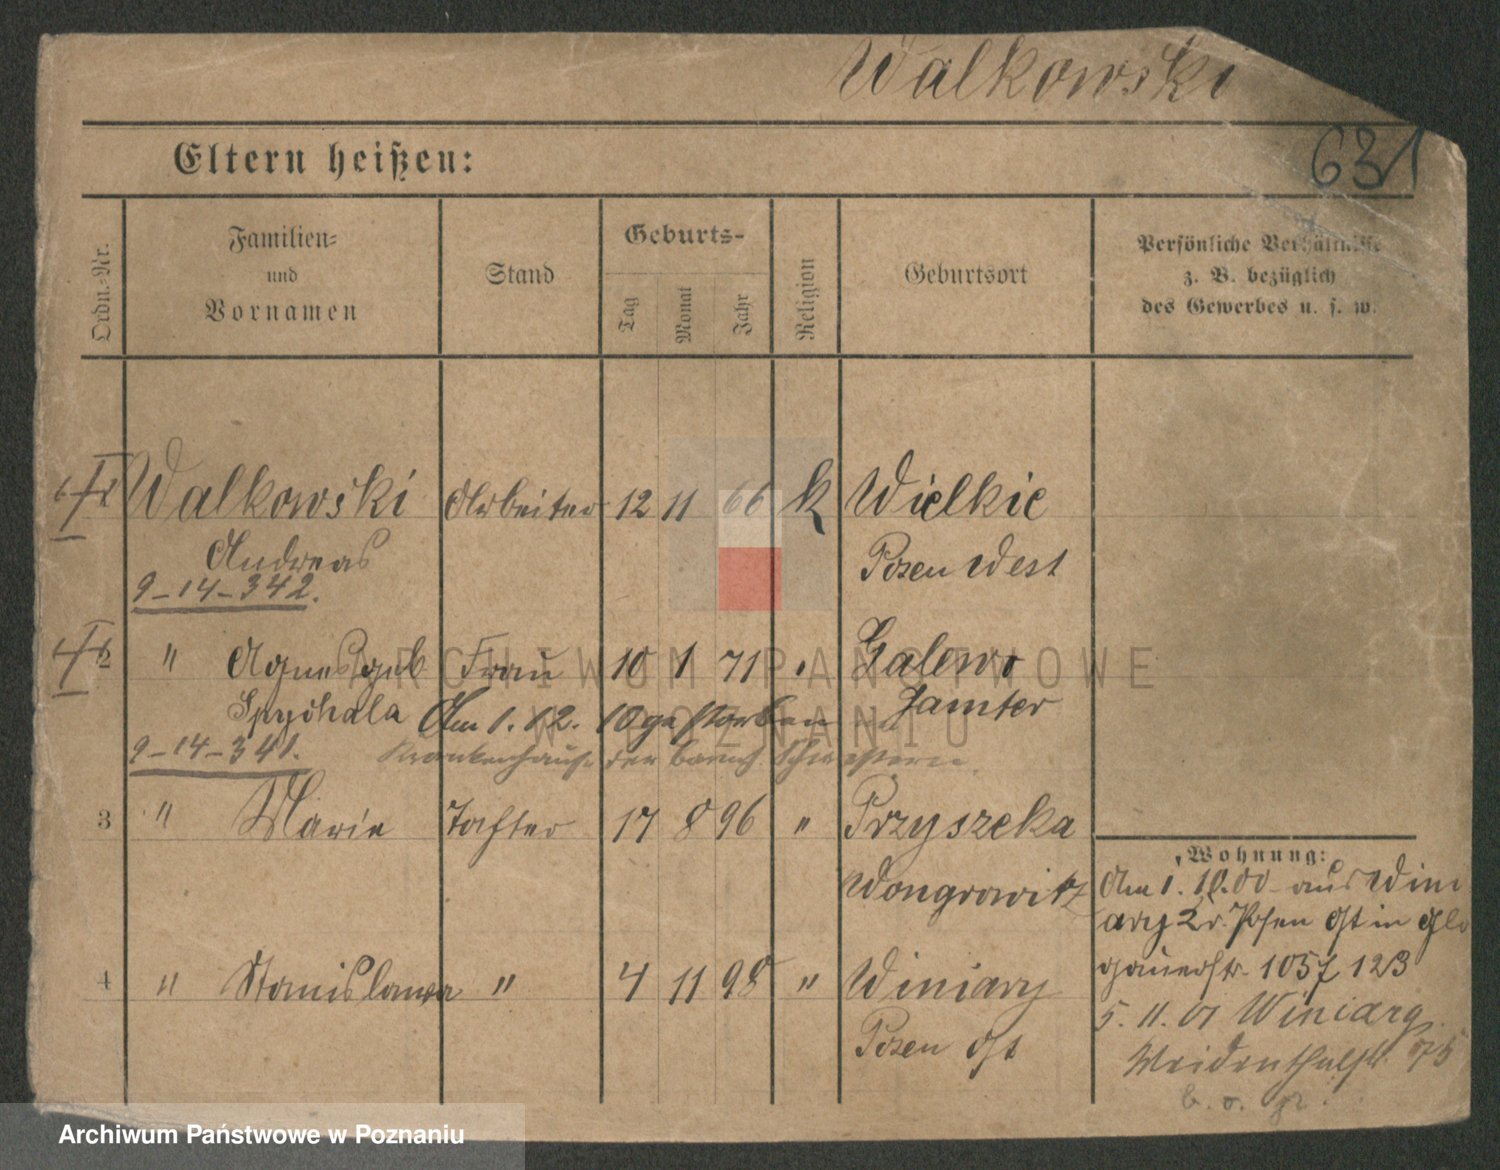 Walkowski
631
Eltern heißen:
Ordn.-Nr.
Familien-
und
Vornamen
Stand
Geburts-
Tag
Monat
Jahr
Religion
Geburtsort
Persönliche Verhältnisse
z. B. bezüglich
des Gewerbes u. s. w.
Walkowski Arbeiter 12 11 66 k Wielkie
Andreas Posen West
9-14-342.
2 " Agnes geb Frau 10 1 71 Galewo
Spychala Am 1.12.10 gestorben Samter
9-14-341. Krankenhause der barmh. Schwestern.
3 " Marie Tochter 17 8 96 " Przyszeka
Wongrowitz
4 " Stanislawa " 4 11 98 " Winiary
Posen Ost
Wohnung:
Am 1.10.00 aus Wini
ary 2 Posen Ost in Glo
gauerstr. 105 123
5. 11. 01 Winiary
Weidenthalstr. 75
ARCHIWUM PAŃSTWOWE
W POZNANIU
Archiwum Państwowe w Poznaniu